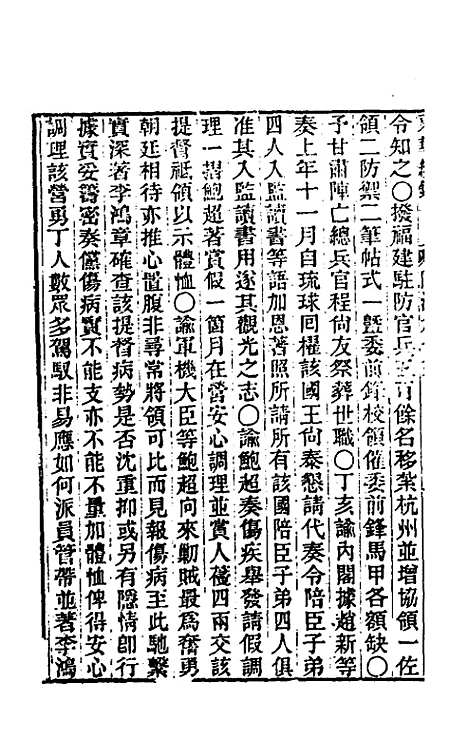 令知之〇撥福建駐防官兵百餘名移紮杭州並增協領一佐
領二防禦二筆帖式一曁委前鋒校領催委前鋒馬甲各額缺〇
予甘肅陣亡總兵官程尙友祭葬世職〇丁亥諭內閣據趙新等
奏上年十一月自琉球囘櫂該國王尙泰懇請代奏令陪臣子弟
四人入監讀書等語加恩著照所請所有該國陪臣子弟四人俱
准其入監讀書用遂其觀光之志〇諭鮑超奏傷疾舉發請假調
理一摺鮑超著賞假一箇月在營安心調理並賞人葠四兩交該
提督祗領以示體恤〇諭軍機大臣等鮑超向來勦賊最爲奮勇
朝廷相待亦推心置腹非尋常將領可比而見報傷病至此馳繫
實深著李鴻章確查該提督病勢是否沈重抑或另有隱情卽行
據實妥籌密奏儻傷病實不能支亦不能不量加體恤俾得安心
調理該營勇丁人數眾多駕馭非易應如何派員管帶並著李鴻